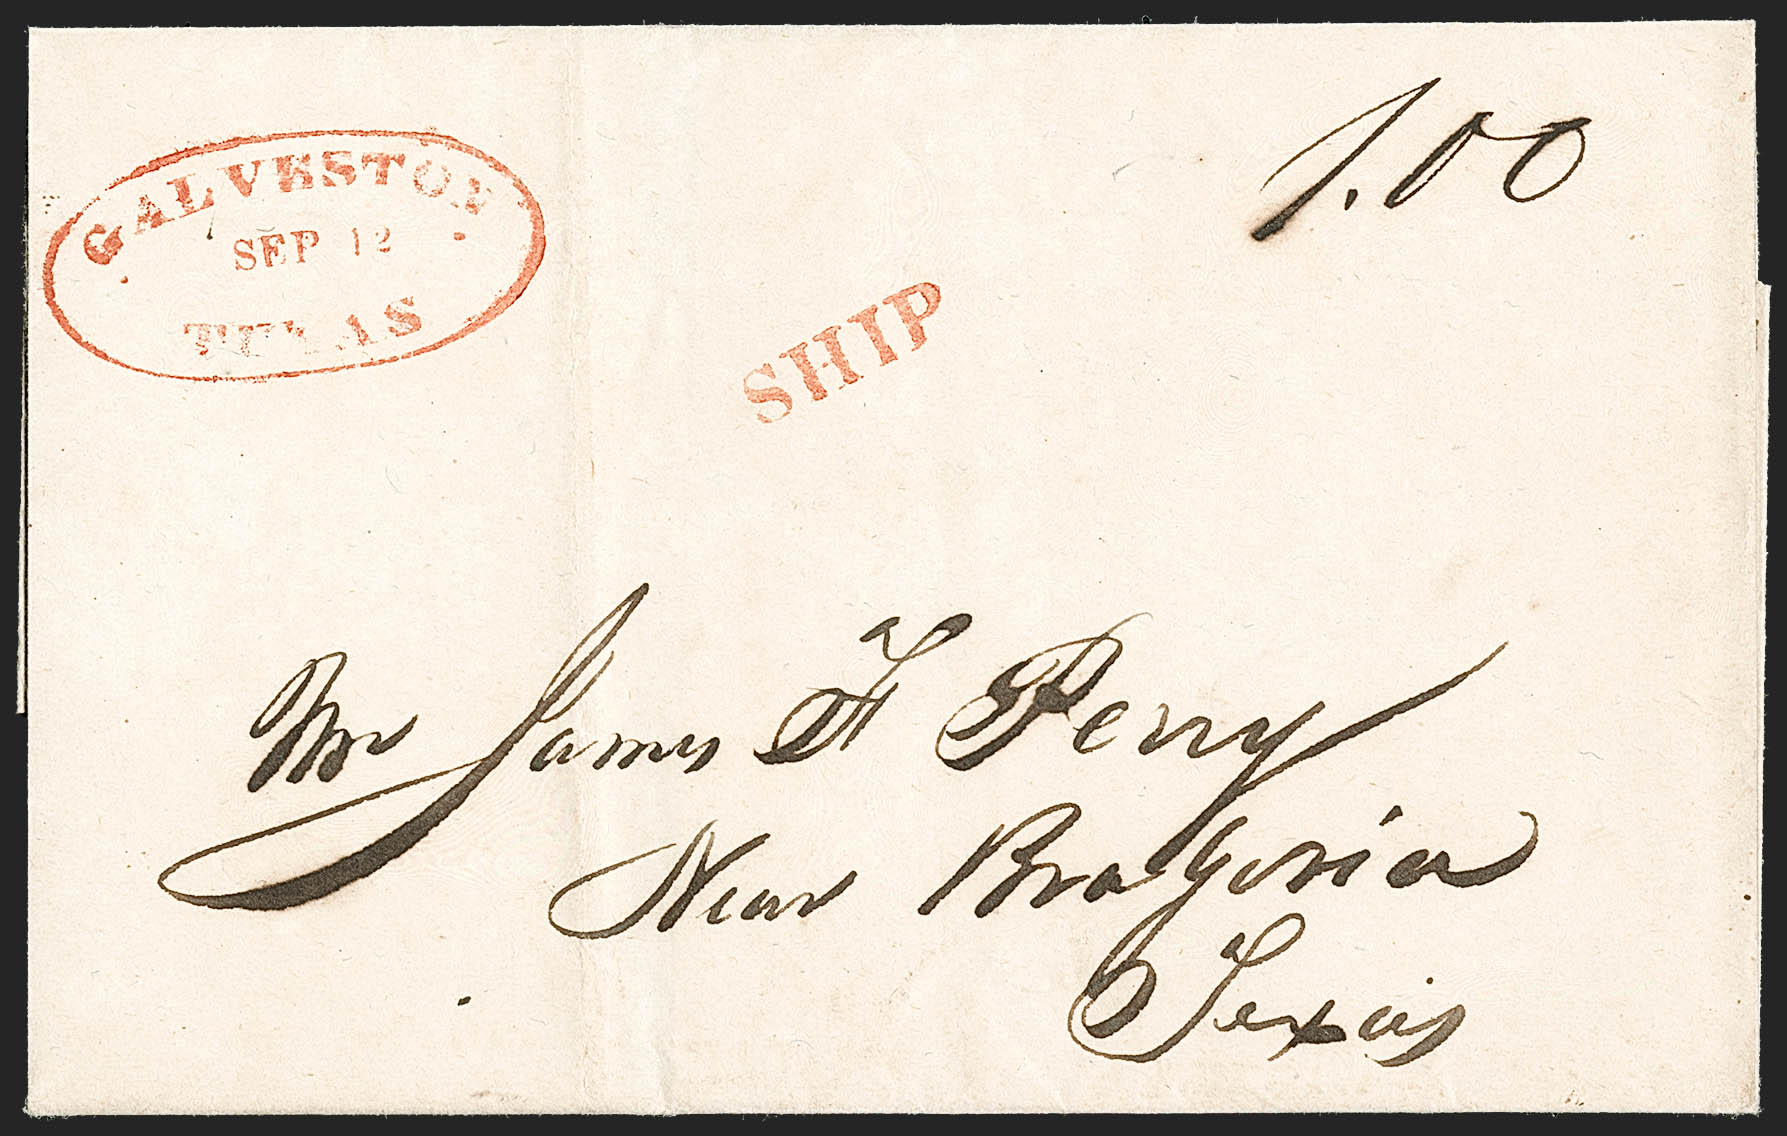 GALVESTON
SEP 12
TEXAS
SHIP
1.00
Mr James F Perry
Near Brazoria
Texas